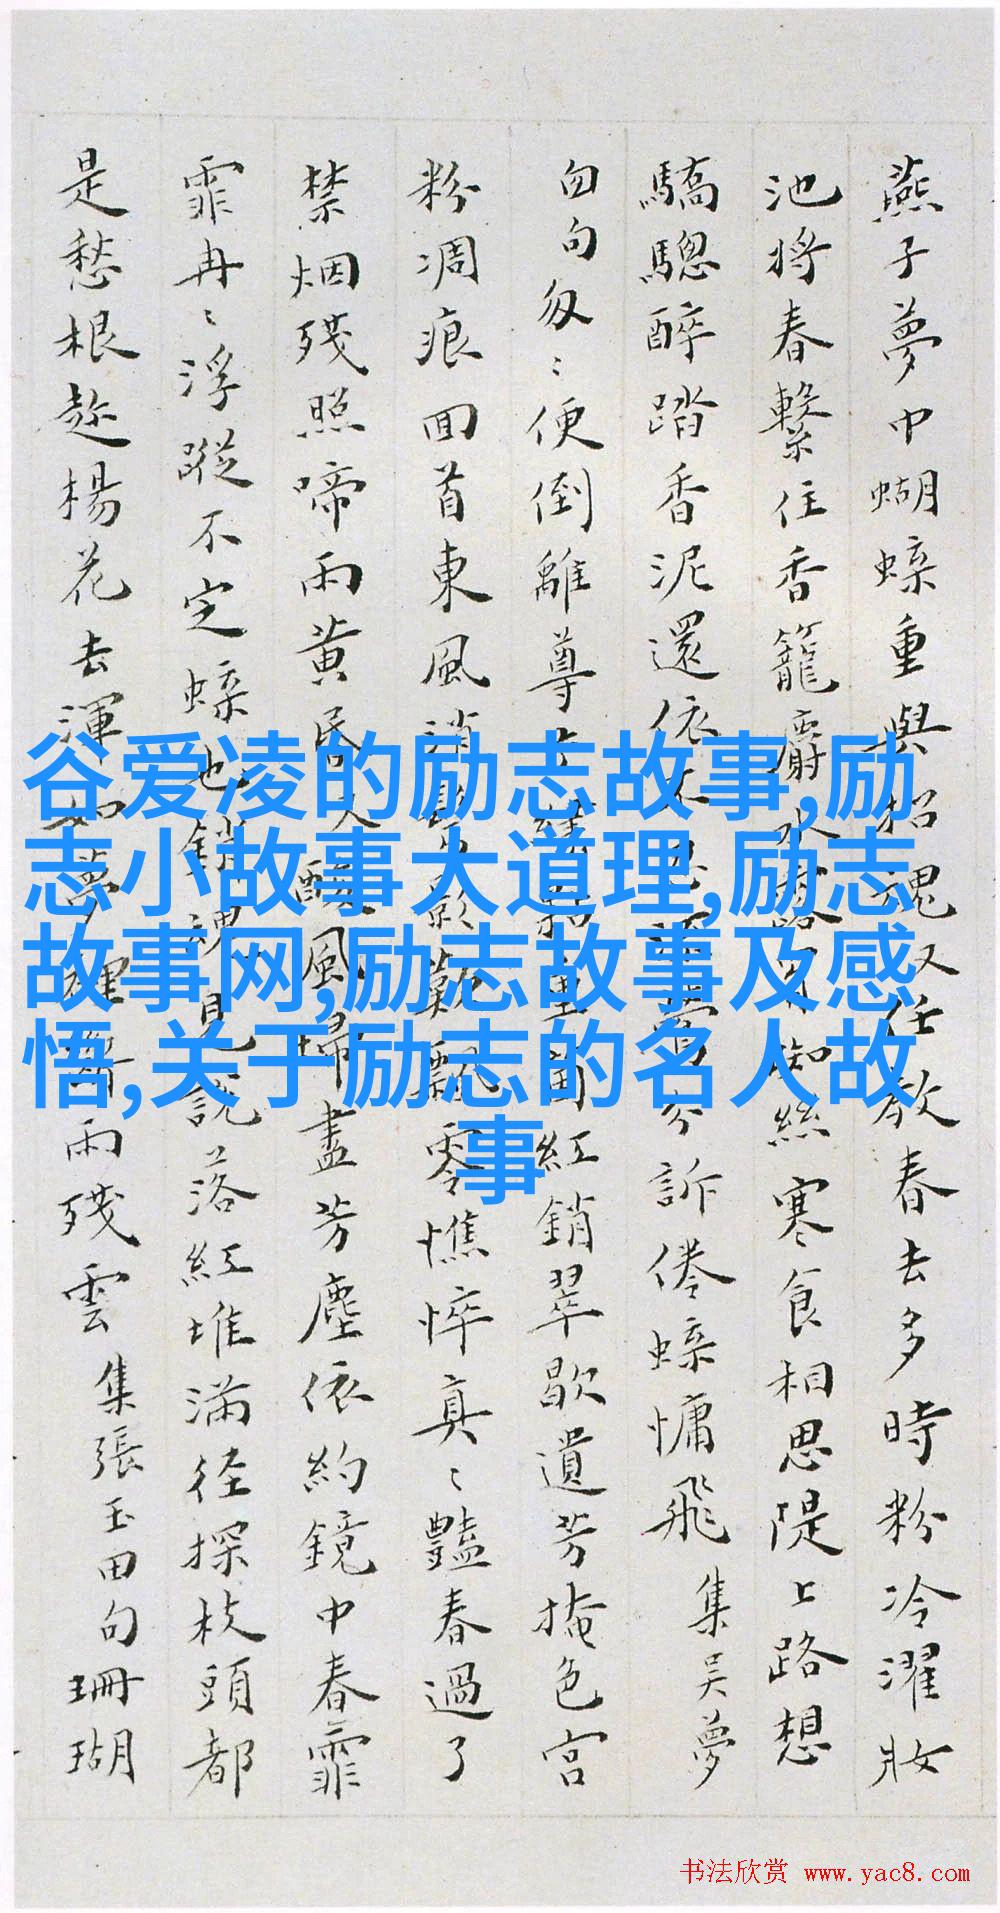 燕子夢中蝴蜨重與招魂又任教春去多時粉冷濯妝
池将春繫住香籠麝水絲寒食相思隄上路想
驕驄醉踏香泥還依訴倦蜨慵飛集吳夢
囱句匆〻便倒離尊紅銷翠歇遺芳掩色宮
粉凋痕回首東風消影歎飄零憔悴真〻豔春過了
禁烟殘照啼雨黃昏人風掃盡芳塵依約鏡中春霏
霏冉〻浮蹤不定蜨也銷魂見說落紅堆滿徑探枝頭都
是愁根趁楊花去渾如夢雨殘雲集張玉田句珊瑚
谷爱凌的励志故事,励
志小故事大道理,励志
故事网,励志故事及感
悟,关于励志的名人故
事
书法欣赏 www.yac8.com